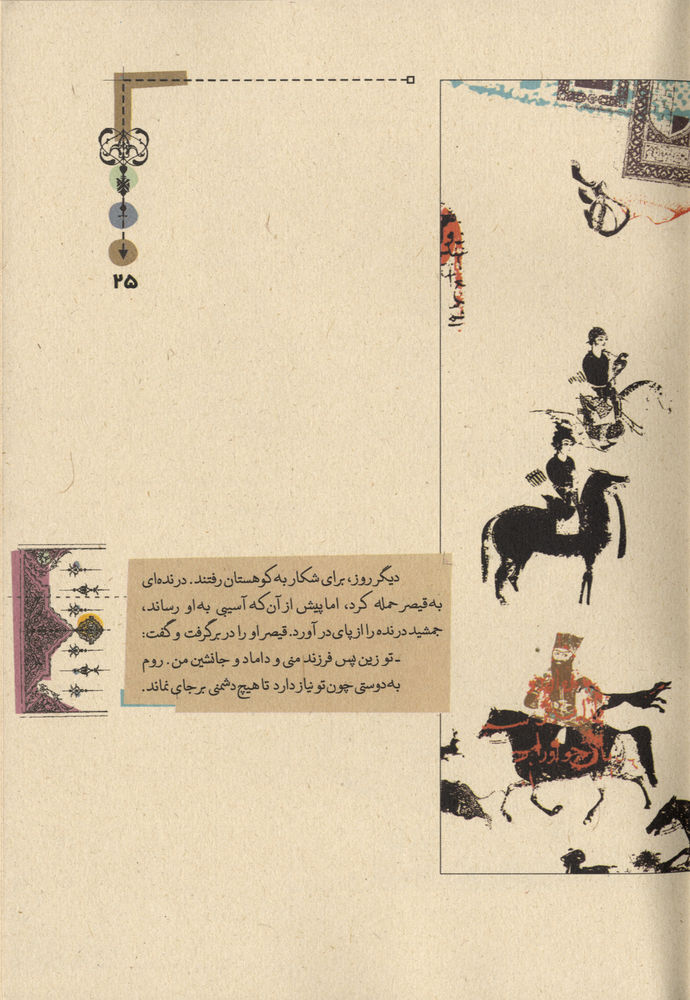 ۲۵
دیگر روز، برای شکار به کوهستان رفتند. درنده‌ای
به قیصر حمله کرد، اما پیش از آن که آسیبی به او رساند،
جمشید درنده را از پای در آورد. قیصر او را در بر گرفت و گفت:
ـ تو زین پس فرزند منی و داماد و جانشین من. روم
به دوستی چون تو نیاز دارد تا هیچ دشمنی بر جای نماند.